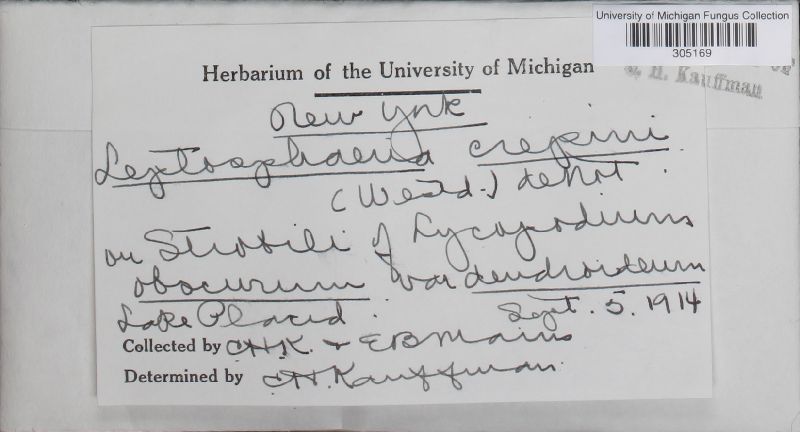 University of Michigan Fungus Collection
305169
C. H. Kauffman
Herbarium of the University of Michigan
New York
Leptosphaeria crepini
(West.) deNot.
on Strobili of Lycopodium
obscurum var dendroideum
Lake Placid. Sept. 5. 1914
Collected by CHK. + EB Mains
Determined by CH. Kauffman.